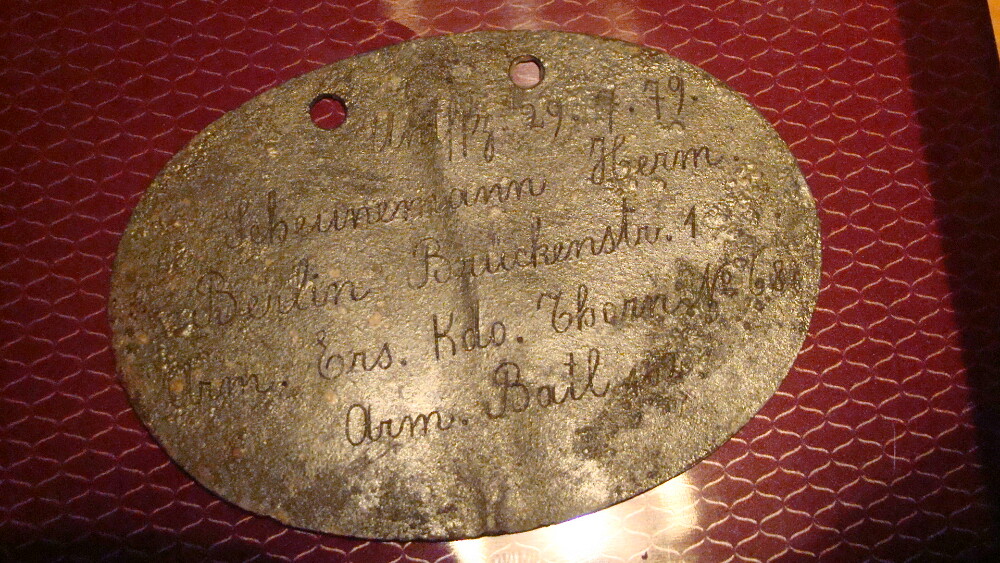 Untffz. 29. 7. 79.
Scheunemann Herm.
Berlin Brückenstr. 1
Arm. Ers. Kdo. Thorn №
Arm. Batl